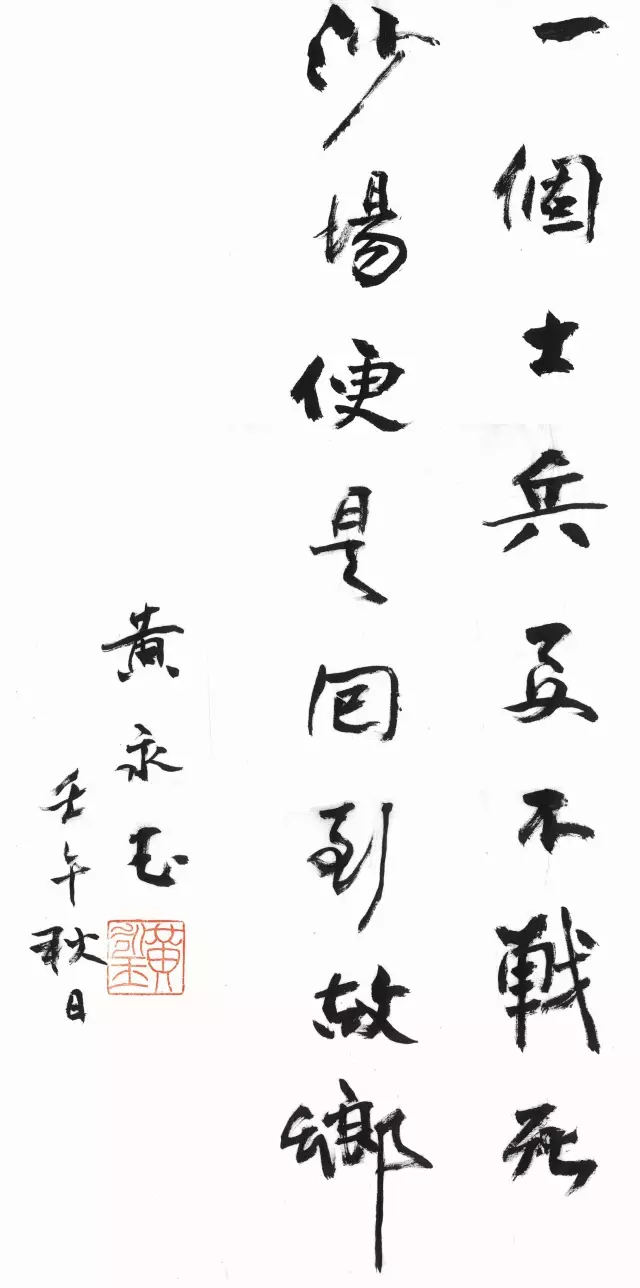 一個士兵要不戰死
沙場便是回到故鄉
黃永玉
壬午秋日
黃永玉